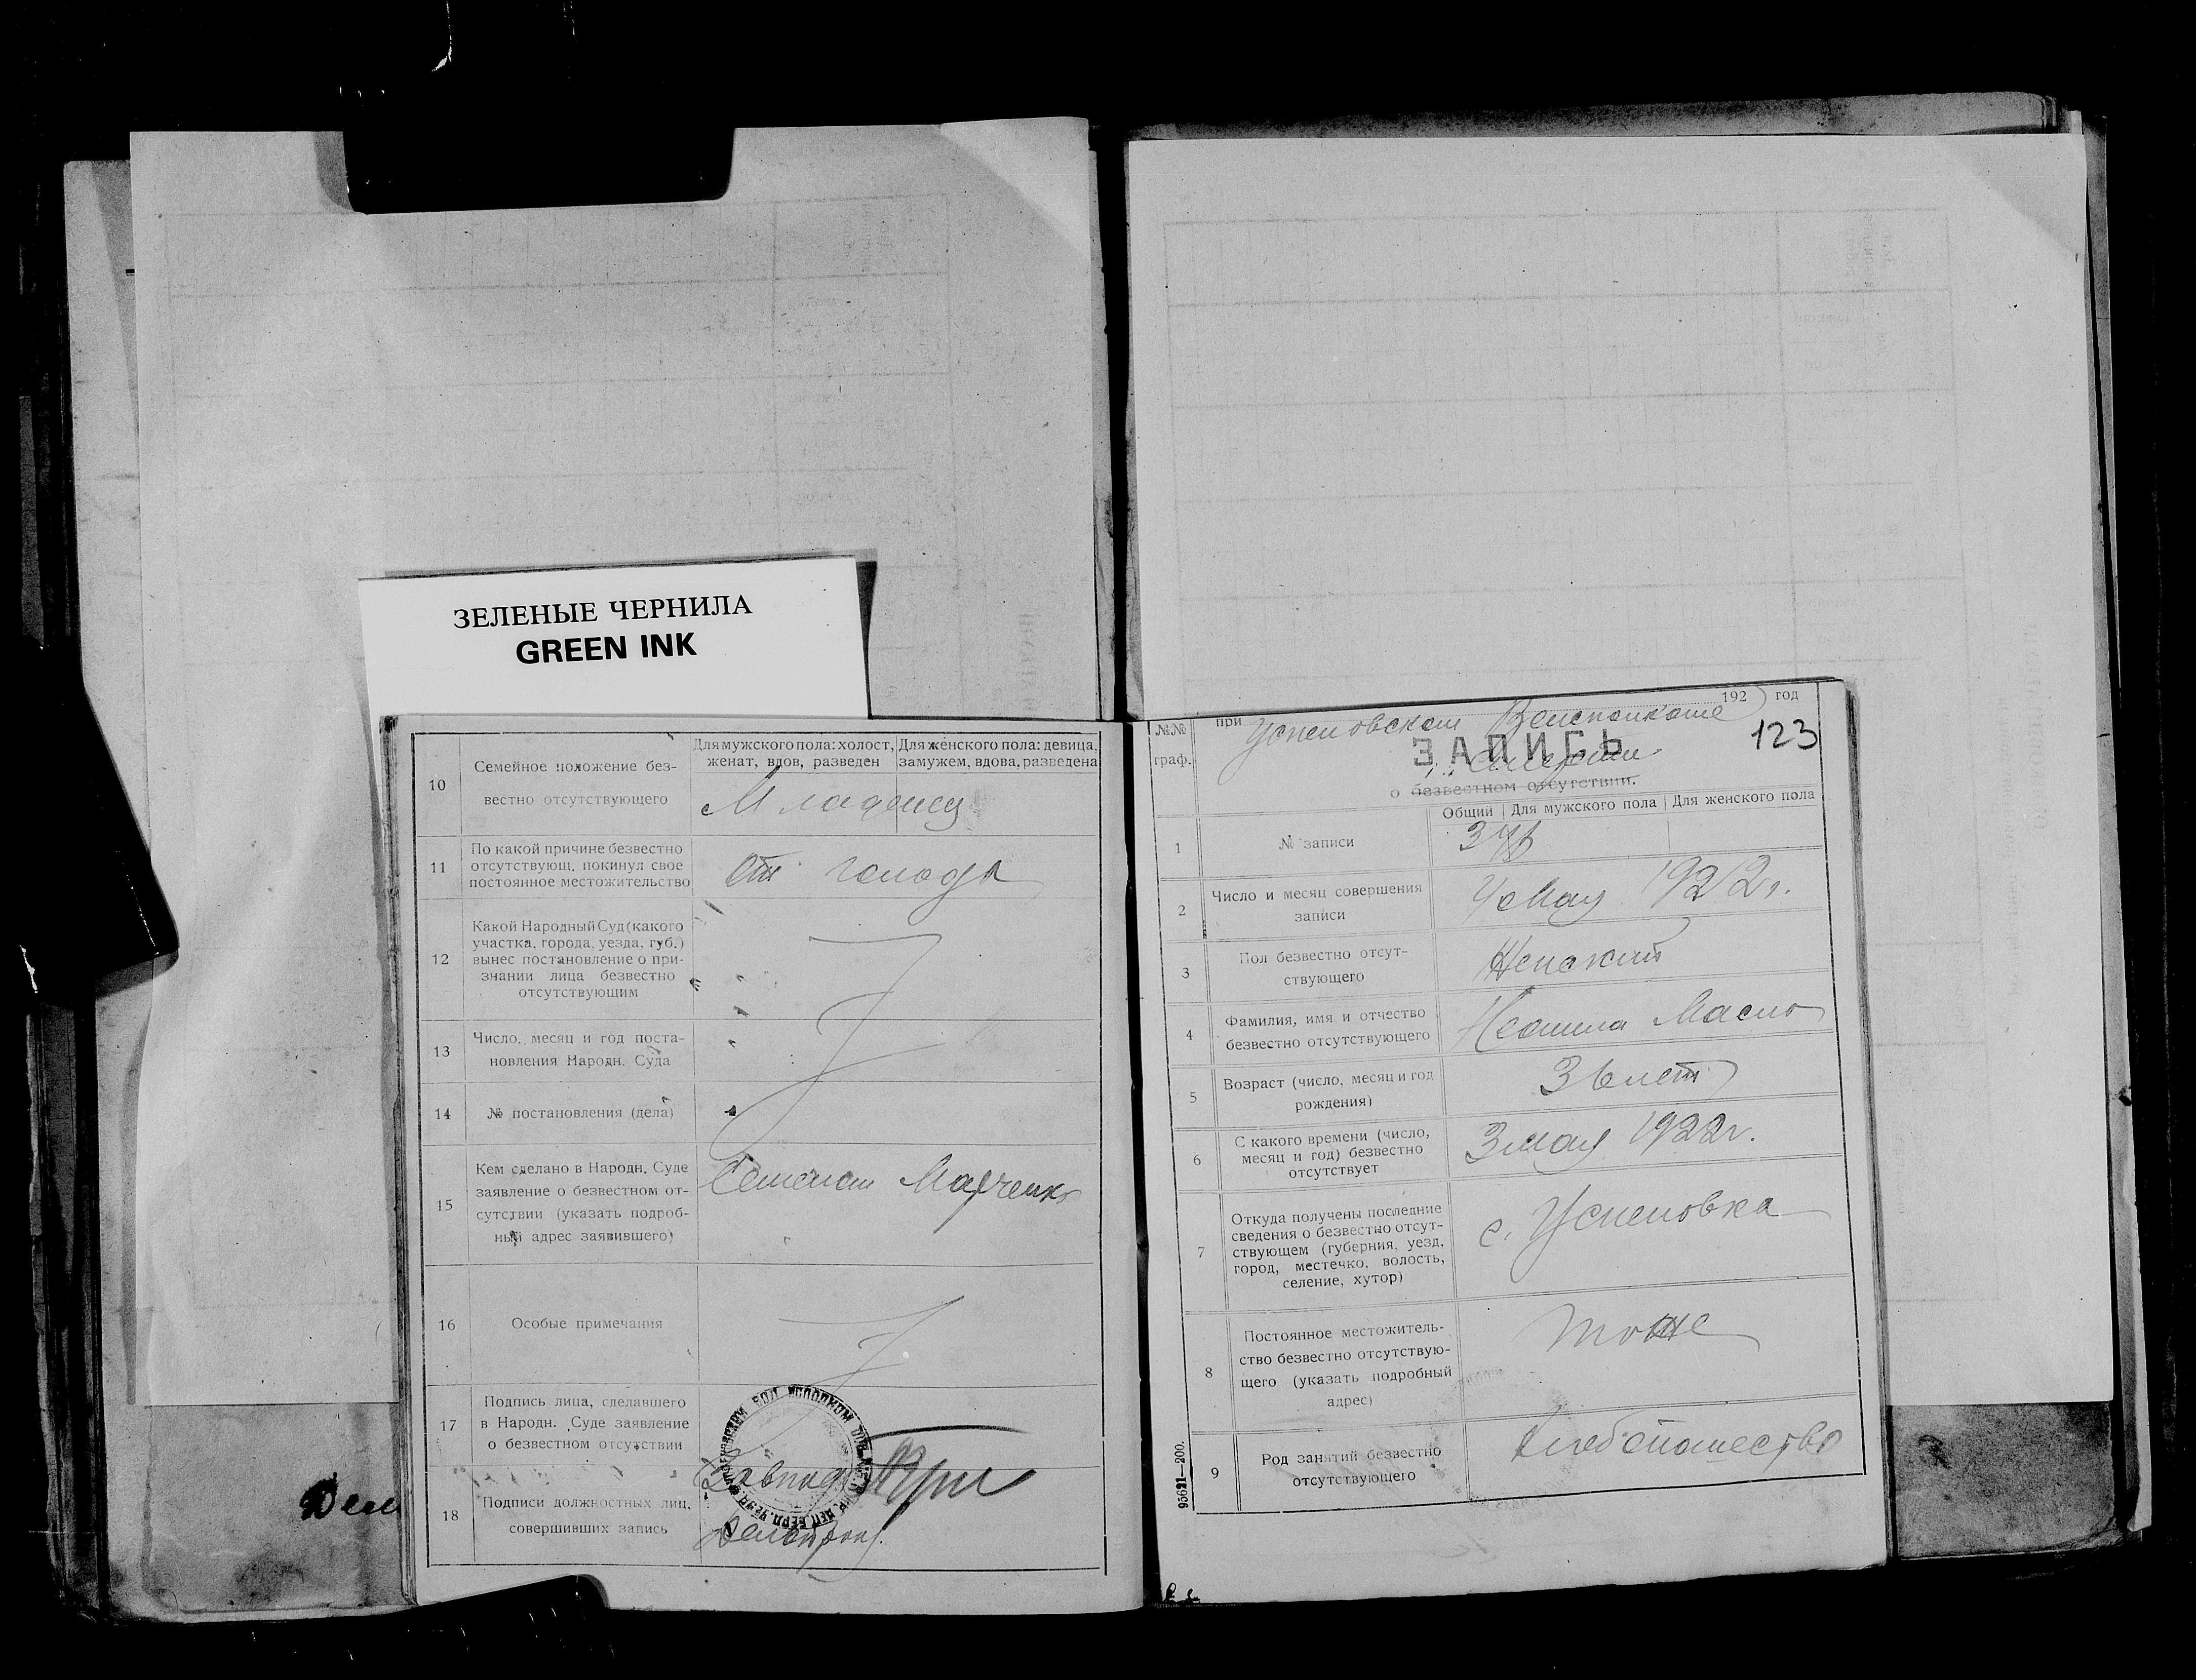 ЗЕЛЕНЫЕ ЧЕРНИЛА
GREEN INK
10
Семейное положение без-
вестно отсутствующего
Для мужского пола: холост,
женат, вдов, разведен
Для женского пола: девица,
замужем, вдова, разведена
Младенец
11
По какой причине безвестно
отсутствующ. покинул свое
постоянное местожительство
От голода
12
Какой Народный Суд (какого
участка, города, уезда, губ.)
вынес постановление о при-
знании лица безвестно
отсутствующим
13
Число, месяц и год поста-
новления Народн. Суда
14
№ постановления (дела)
15
Кем сделано в Народн. Суде
заявление о безвестном от-
сутствии (указать подроб-
ный адрес заявившего)
Семеном Марченко
16
Особые примечания
17
Подпись лица, сделавшего
в Народн. Суде заявление
о безвестном отсутствии
18
Подписи должностных лиц,
совершивших запись
Завпод
Делопроиз.
№№
граф.
при
192
год
Успеновском Волисполкоме
123
ЗАПИСЬ
смерти
о безвестном отсутствии.
Общий
Для мужского пола
Для женского пола
1
№ записи
2
Число и месяц совершения
записи
4 Мая 1922 г.
3
Пол безвестно отсут-
ствующего
Женский
4
Фамилия, имя и отчество
безвестно отсутствующего
Масло
5
Возраст (число, месяц и год
рождения)
лет
6
С какого времени (число,
месяц и год) безвестно
отсутствует
3 мая 1922 г.
7
Откуда получены последние
сведения о безвестно отсут-
ствующем (губерния, уезд,
город, местечко, волость,
селение, хутор)
с. Успеновка
8
Постоянное местожитель-
ство безвестно отсутствую-
щего (указать подробный
адрес)
тоже
9
Род занятий безвестно
отсутствующего
Хлебопашество
95621—200.